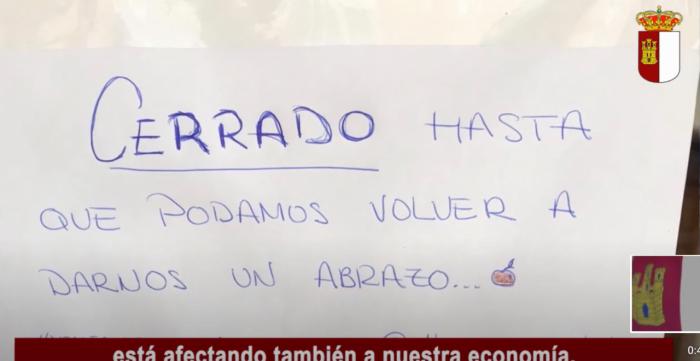 CERRADO HASTA
QUE PODAMOS VOLVER A
DARNOS UN ABRAZO...
está afectando también a nuestra economía.